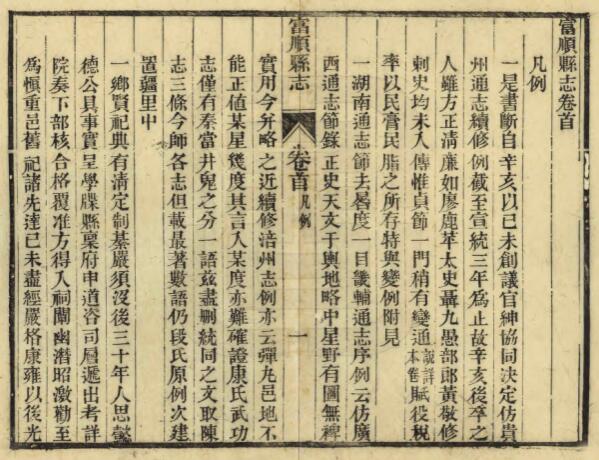 富順縣志卷首
凡例
一是書斷自辛亥以已未創議官紳協同決定仿貴
州通志續修例截至宣統三年為止故辛亥後卒之
人雖方正清廉如廖鹿苹太史聶九愚部郎黃敬修
刺史均未入傳惟貞節一門稍有變通說詳本卷賦役稅
率以民膏民脂之所存特與變例附見
一湖南通志節去晷度一目畿輔通志序例云仿廣
西通志節錄正史天文于輿地略中星野有圖無裨
富順縣志
卷首
凡例
一
實用今并略之近續修涪州志例亦云彈丸邑地不
能正值某星幾度其言入某度亦難確證康氏武功
志僅有秦當井鬼之分一語茲盡刪統同之文取陳
志三條今師各志但載最著數語仍段氏原例次建
置疆里中
一鄉賢祀典有清定制綦嚴須沒後三十年人思懿
德公具事實呈學牒縣稟府申道咨司層遞出考詳
院奏下部核合格覆准方得入祠闡幽潛昭激勸至
為慎重邑舊祀諸先達已未盡經嚴格康雍以後光